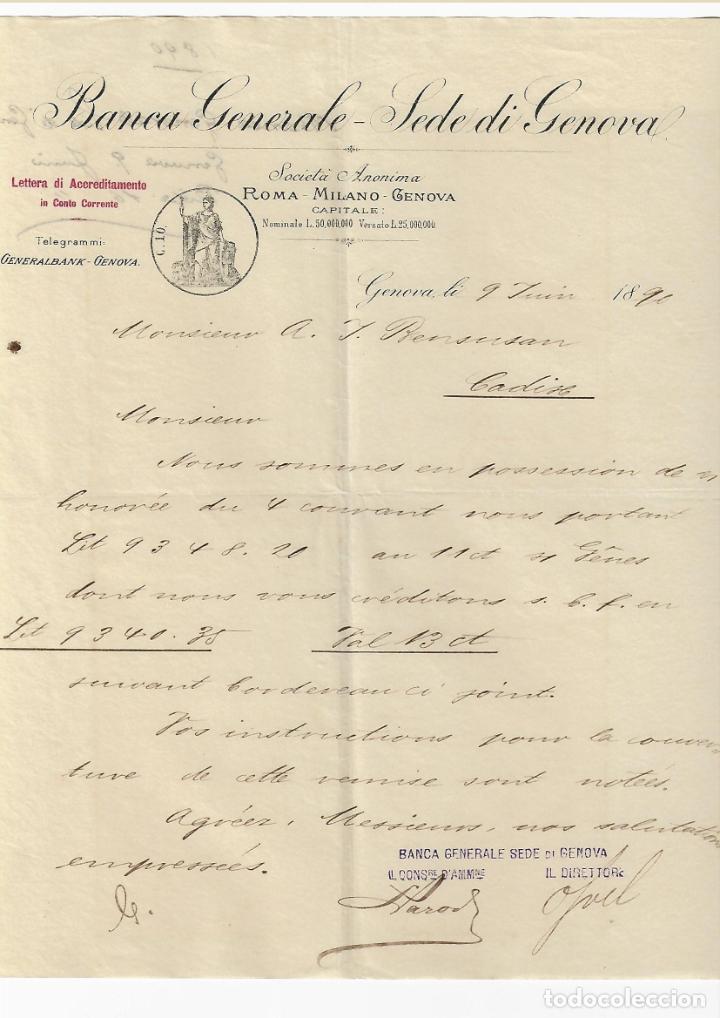 Banca Generale - Sede di Genova
Lettera di Accreditamento
in Conto Corrente
Telegrammi:
GENERALBANK - GENOVA.
C. 10.
Società Anonima
ROMA - MILANO - GENOVA
CAPITALE:
Nominale L. 50,000,000 Versato L. 25,000,000
Genova, li 9 Juin 1890
Monsieur A. J. Bensusan
Cadix
Monsieur
Nous sommes en possession de
honorée du 4 courant nous portant
Lit 9348.20 au 11 ct s/ Gênes
dont nous vous créditons s. b. f. en
Lit 9340.35 Val 13 ct
suivant bordereau ci joint.
Vos instructions pour la couver-
ture de cette remise sont notées.
Agréez, Messieurs, nos salutations
empressées.
BANCA GENERALE SEDE DI GENOVA
IL CONS.RE D'AMM.NE IL DIRETTORE
todocoleccion